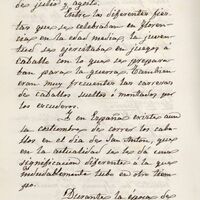 de julio y agosto.
Entre las diferentes fies-
tas que se celebraban en Floren-
cia en la edad media, la juven-
tud se ejercitaba en juegos á
caballo con lo que se prepara-
ban para la guerra. Tambien
eran muy frecuentes las carreras
de caballos sueltos ó montados por
los escuderos.
en España existe aun
la costumbre de correr los caba-
llos en el dia de San Anton, que
en la actualidad se les da una
significacion diferente á la que
indudablemente tubo en otro tiem-
po.
Durante la época de